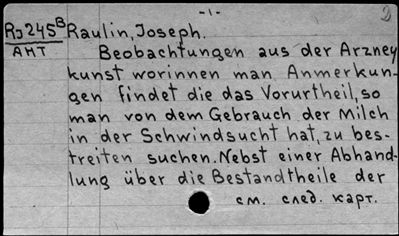 -1-
2
RJ245B Raulin, Joseph.
AHT Beobachtungen aus der Arzney
kunst worinnen man Anmerkun-
gen findet die das Vorurtheil, so
man von dem Gebrauch der Milch
in der Schwindsucht hat, zu bes-
treiten suchen. Nebst einer Abhand-
lung über die Bestandtheile der
см. след. карт.